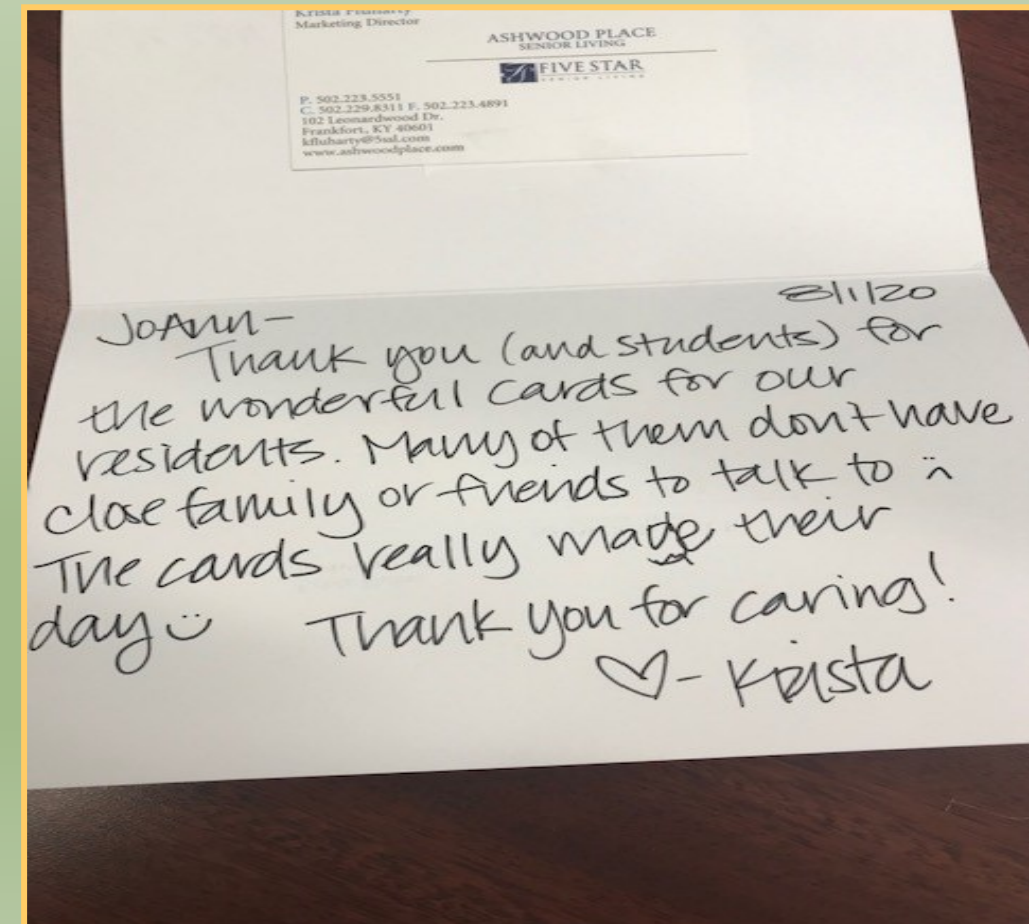 Krista Fluharty
Marketing Director
ASHWOOD PLACE
SENIOR LIVING
FIVE STAR
SENIOR LIVING
P. 502.223.5551
C. 502.229.8311 F. 502.223.4891
102 Leonardwood Dr.
Frankfort, KY 40601
kfluharty@5ssl.com
www.ashwoodplace.com
8/1/20
JoAnn-
Thank you (and students) for
the wonderful cards for our
residents. Many of them don't have
close family or friends to talk to
The cards really made their
day Thank you for caring!
♡- Krista